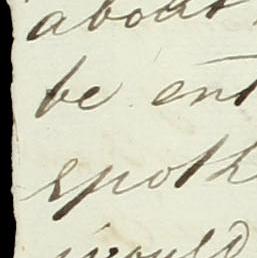 about
be ent
spoth
would